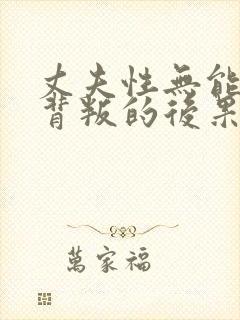 丈夫性無能
背叛的後果
萬家福